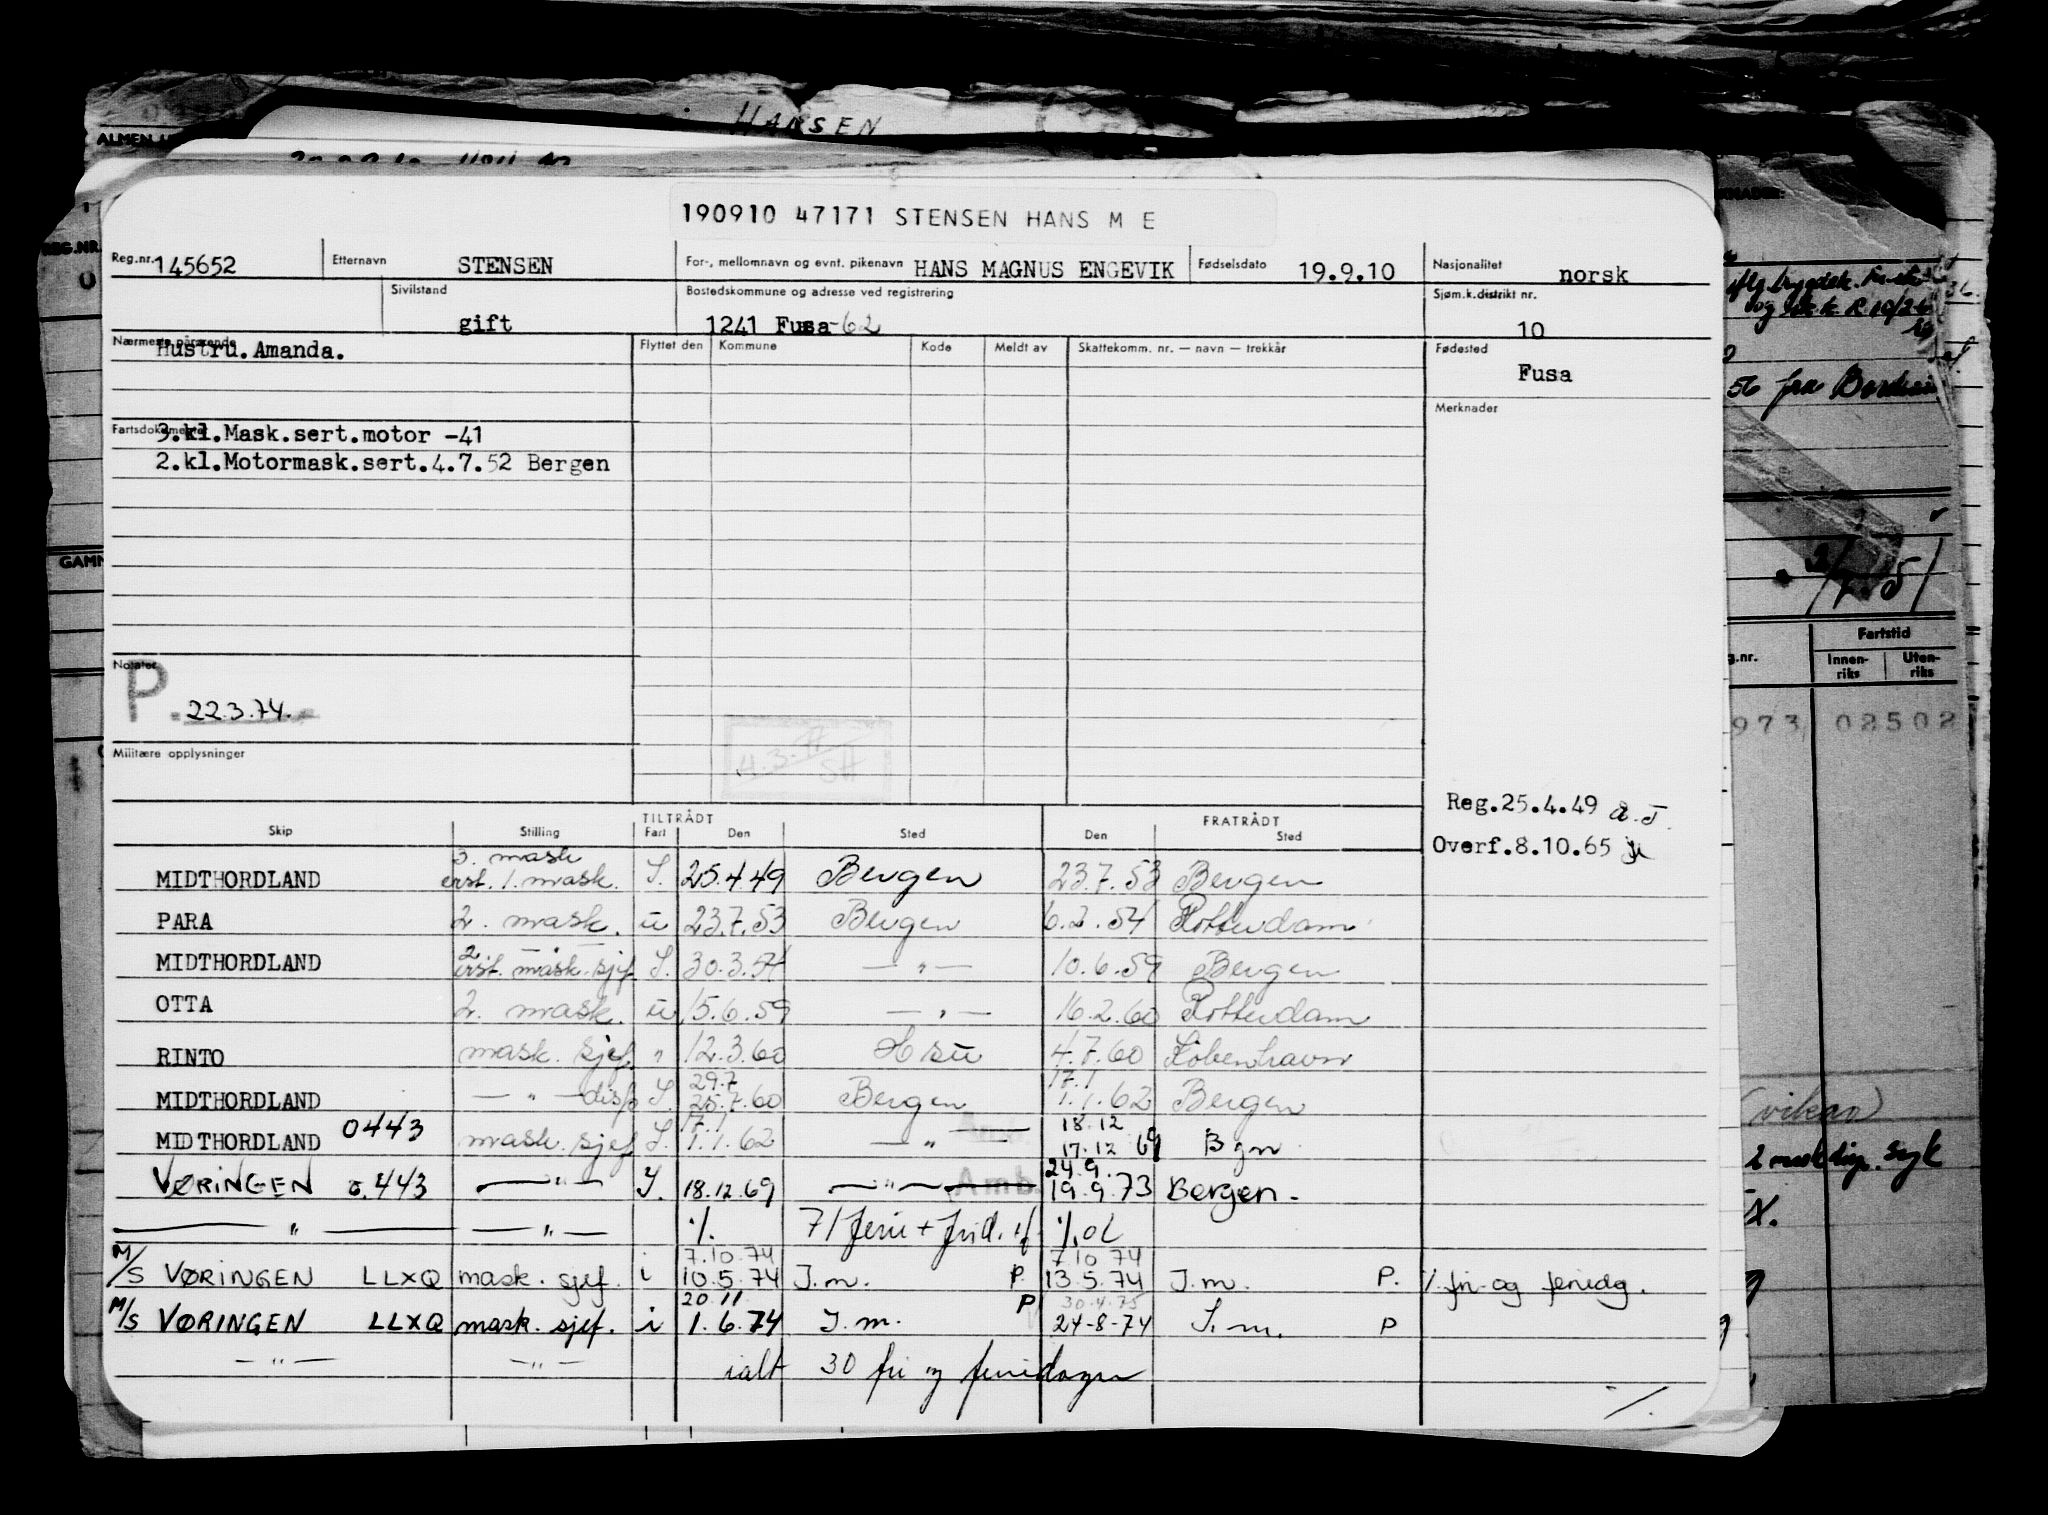 HANSEN
190910 47171 STENSEN HANS M E
Reg.nr. 145652 Etternavn STENSEN For-, mellomnavn og evnt. pikenavn HANS MAGNUS ENGEVIK Fødselsdato 19.9.10 Nasjonalitet norsk
Sivilstand gift Bostedskommune og adresse ved registrering 1241 Fusa-62 Sjøm.k.distrikt nr. 10
Nærmeste pårørende Hustru.Amanda. Flyttet den Kommune Kode Meldt av Skattekomm. nr. — navn — trekkår Fødested Fusa
Merknader
Fartsdokumenter 3.kl.Mask.sert.motor -41
2.kl.Motormask.sert.4.7.52 Bergen
Notater
P. 22.3.74.
Militære opplysninger
Reg.25.4.49
Overf.8.10.65
TILTRÅDT FRATRÅDT
Skip Stilling Fart Den Sted Den Sted
3. mask
MIDTHORDLAND erst. 1. mask. I. 25.4.49 Bergen 23.7.53 Bergen
PARA 2. mask. u 23.7.53 Bergen 6.2.54 Rotterdam
2 — " —
MIDTHORDLAND erst. mask. sjef I. 30.3.54 — " — 10.6.59 Bergen
OTTA 2. mask. u 15.6.59 — " — 16.2.60 Rotterdam
RINTO mask. sjef. " 12.3.60 4.7.60 København
29.7 17.1
MIDTHORDLAND — " — disp I. 25.7.60 Bergen 1.1.62 Bergen
17.1 18.12
MIDTHORDLAND 0443 mask. sjef I. 1.1.62 — " — 17.12 69 Bgn
24.9.
VØRINGEN 0.443 — " — I. 18.12.69 — " — Amb. 19.9.73 Bergen.
— " — — " — %. 71 ferie + frid.
7.10.74 7.10 74
M/S VØRINGEN LLXQ mask. sjef. i 10.5.74 I.m. P. 13.5.74 I.m. P. % fri- og feriedg.
20.11 30.4.75
M/S VØRINGEN LLXQ mask. sjef. i 1.6.74 I.m. P 24-8-74 I.m. P
— " — — " — ialt 30 fri og feriedager
%.
56 fra
Fartstid
g.nr. Innen-riks Uten-riks
973 02502